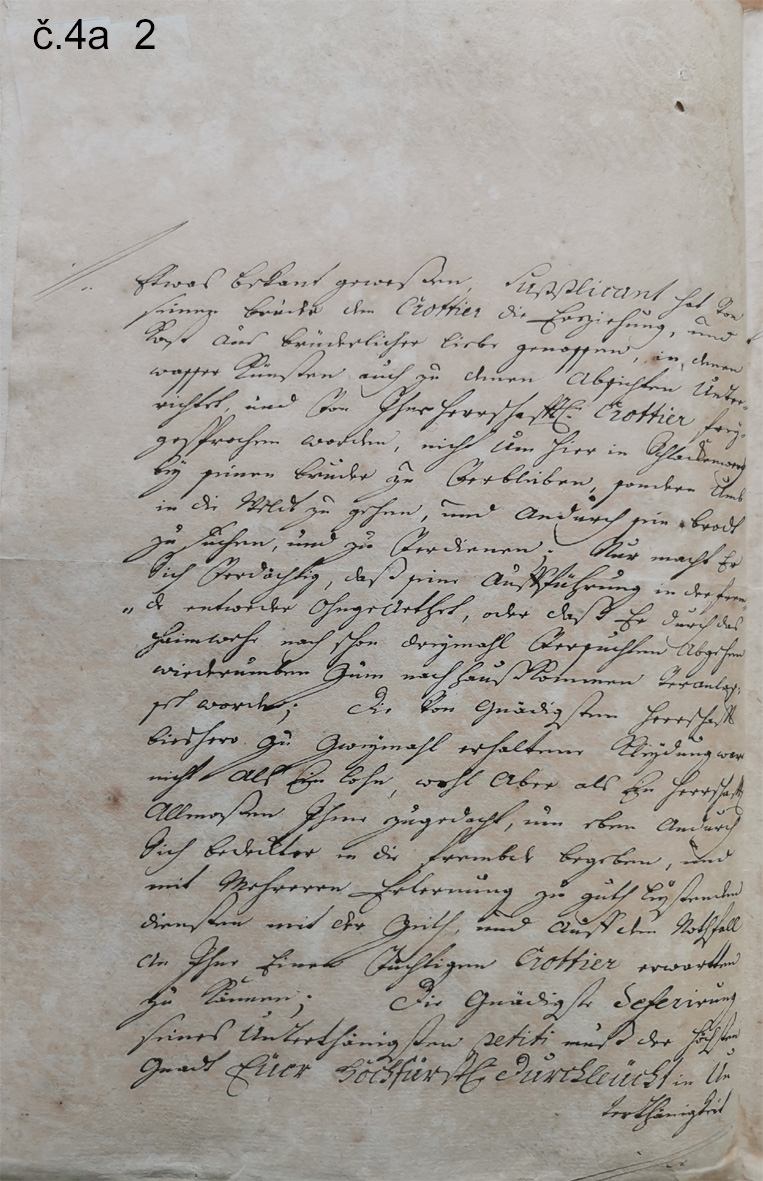 č.4a 2
Etwas bekant geweßen, Supplicant hat von
seinen bruder dem Crottier die Erziehung, und
Kost aus brüderlicher liebe genossen, in denen
wasser Künsten auch zu denen Absichten Unter-
richtet, und von Ihme herrschafftl: Crottier frey-
gesprochen worden, nicht um hier in Schlackenwerth
bey seinen bruder zu verbleiben, sondern umb
in die Weldt zu gehen, und andurch sein brodt
zu suchen, und zu verdienen; Nur macht Er
Sich verdächtig, daß seine Aufführung in der frem-
de entweder ohngearthet, oder daß Er durch das
haimwehe nach schon dreymahl versuchten Abgehen
wiederumben zum nachhauß kommen veranlas-
set worden; Die von Gnädigsten Herrschafft
bieshero zu zweymahl erhaltene Kleydung war
nicht als Ein lohn, wohl Aber als Ein Herrschafftl
Allmoßen Ihme zugedacht, um eben Andurch
Sich bedeckter in die frembde begeben, und
mit Mehreren Erlernung zu guth leystenden
diensten mit der Zeith, und auff den Nothfall
an Ihme Einen Tüchtigen Crottier erwartten
zu können; Die Gnädigste Deferirung
seines Unterthänigsten petiti muß der höchsten
Gnadt Euer Hochfürstl: Durchleücht in Un-
terthänigkeit